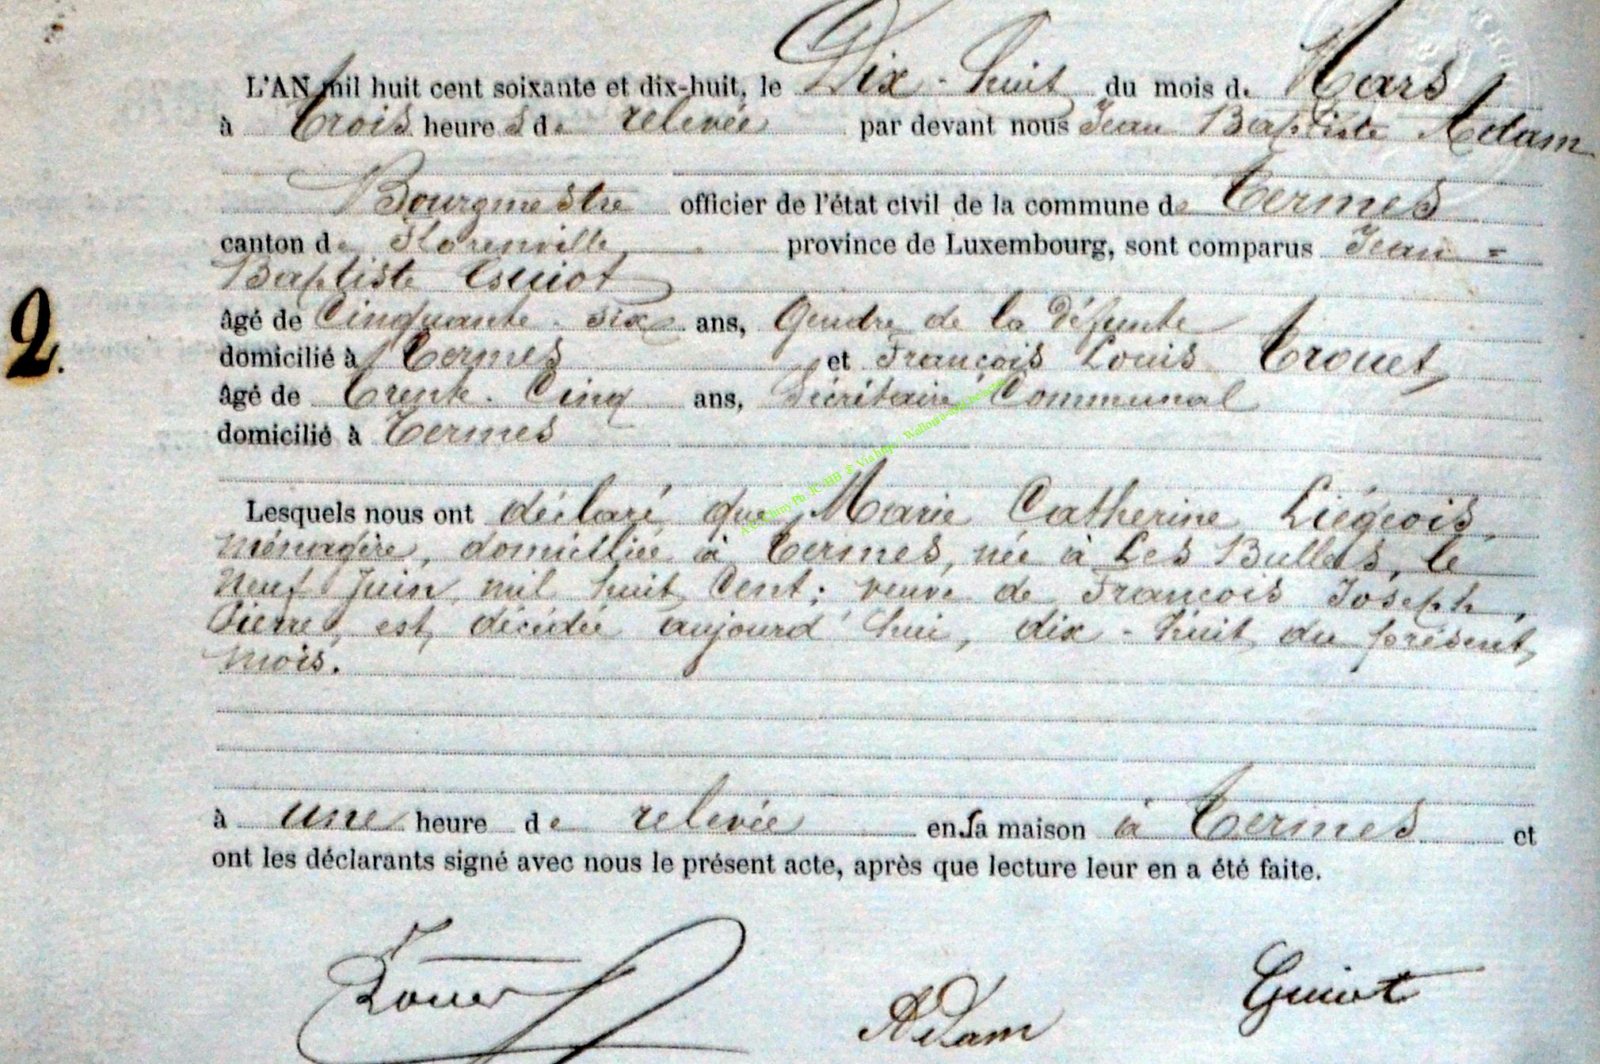 L'AN mil huit cent soixante et dix-huit, le Dix-huit du mois de Mars
à Trois heures de relevée par devant nous Jean Baptiste Adam
Bourgmestre officier de l'état civil de la commune de Termes
canton de Florenville province de Luxembourg, sont comparus Jean=
Baptiste Guiot
âgé de Cinquante-six ans, Gendre de la Défunte
domicilié à Termes et François Louis Trouet,
âgé de Trente-Cinq ans, Sécrétaire Communal
domicilié à Termes
2.
Lesquels nous ont déclaré que Marie Catherine Liégeois,
ménagère, domiciliée à Termes, née à Les Bulles, le
neuf Juin mil huit Cent; veuve de François Joseph,
Pierre, est décédée aujourd'hui, dix-huit du présent
mois.
à une heure de relevée en sa maison à Termes et
ont les déclarants signé avec nous le présent acte, après que lecture leur en a été faite.
Trouet Adam Guiot